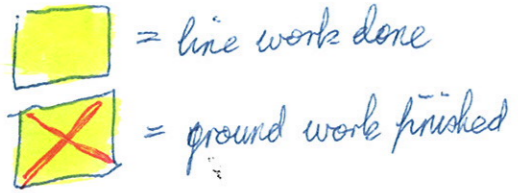 = line work done
= ground work finished